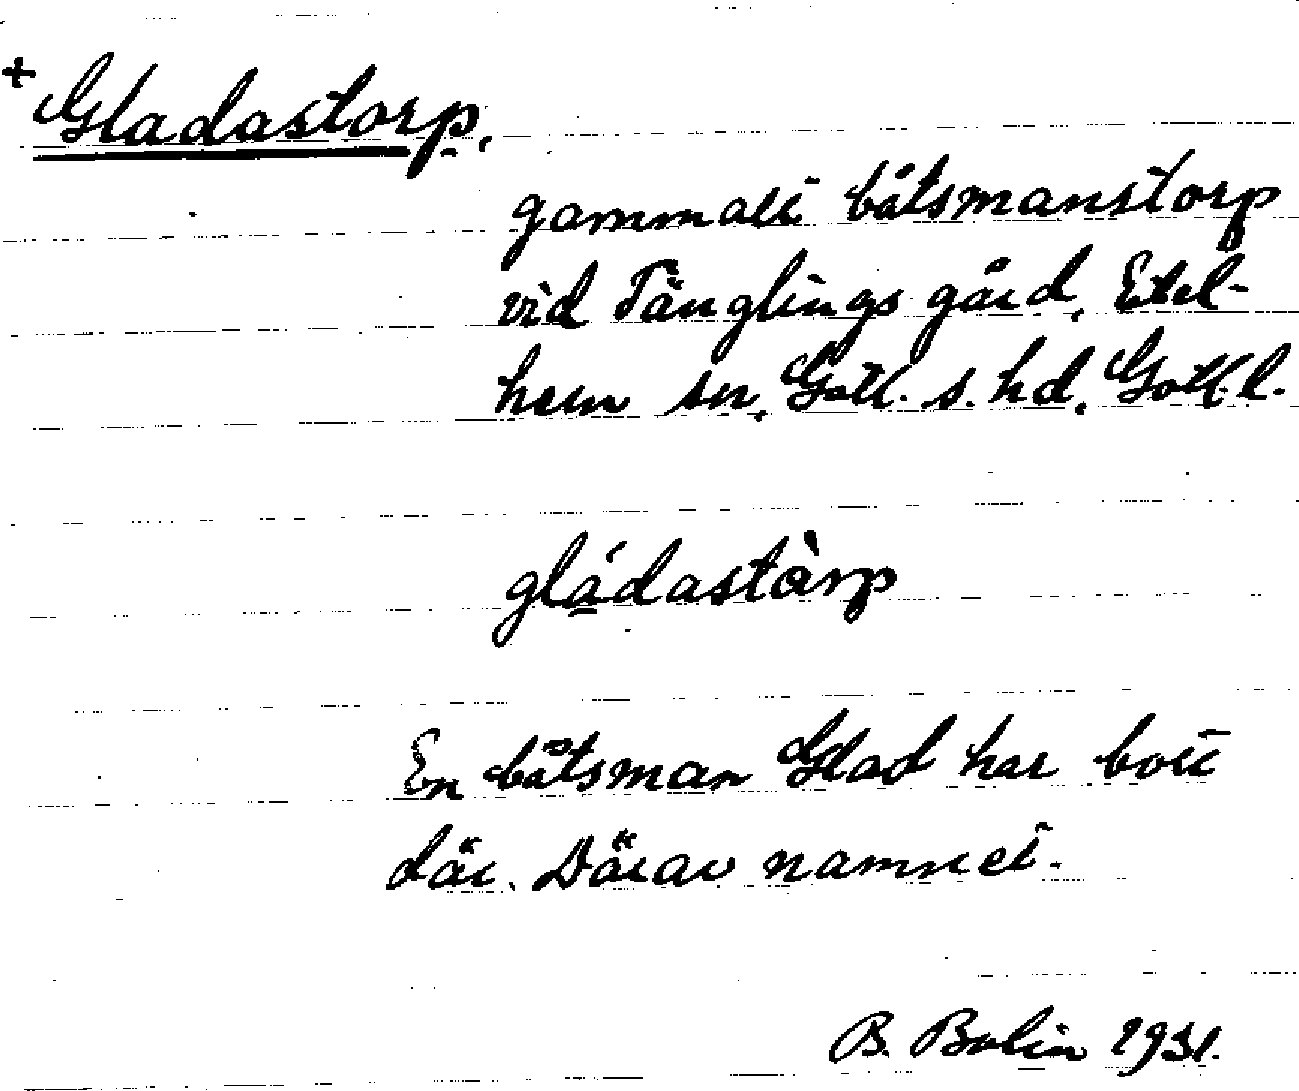 +Gladastorp.
gammalt båtsmanstorp
vid Tänglings gård, Etel-
hem sn, Gotl. s. hd, Gotl. l.
gládastàrp
En båtsman Glad har bott
där. Därav namnet.
B. Bolin 1931.